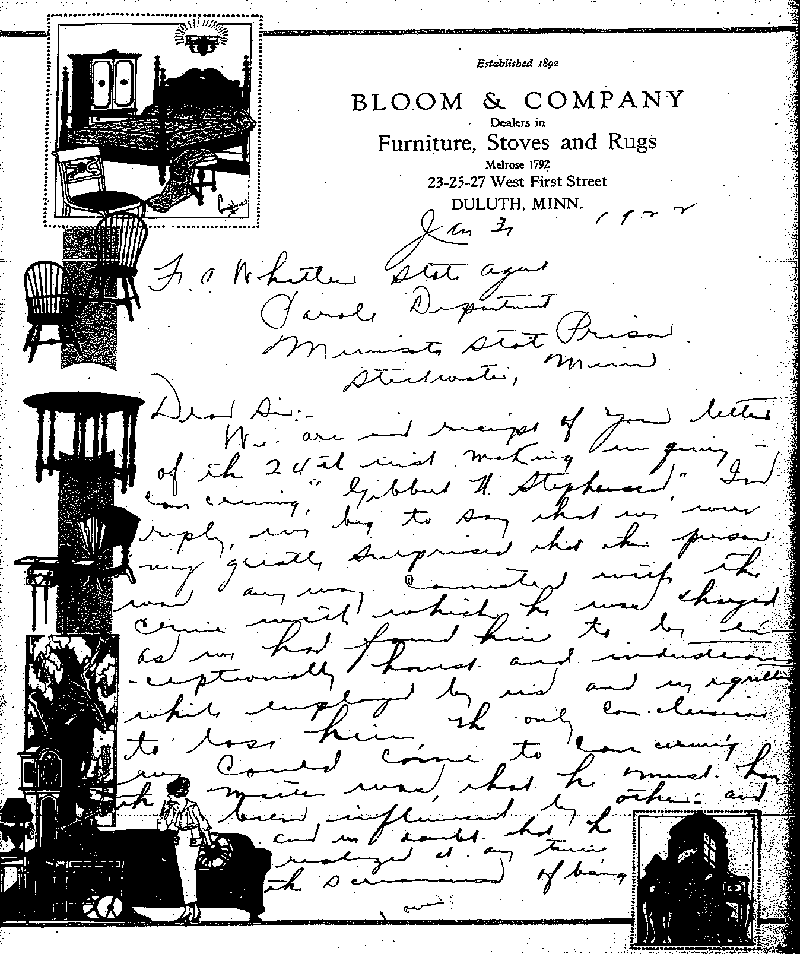 Established 1892
BLOOM & COMPANY
Dealers in
Furniture, Stoves and Rugs
Melrose 1792
23-25-27 West First Street
DULUTH, MINN.
Jan 3, 1922
F. A. Whittier State Agent
Parole Department
Minnesota State Prison
Stillwater, Minn
Dear Sir:-
We are in receipt of your letter
of the 24th inst making inquiry
concerning "Gilbert H. Stephenson" In
reply, we beg to say that we were
very greatly surprised that this person
was any way connected with the
crime with which he was charged
as we had found him to be ex-
ceptionally honest and industrious
while employed by us and we regretted
to loss him. The only conclusion
we could come to concerning
the matter was, that he must have
been influenced by others and
and we doubt that he
realized at any time
the seriousness of being